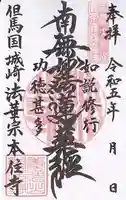 奉拝 令和五年 月 日
和説修行
南無妙法蓮華経
功徳甚多
但馬国城崎 法華宗本住寺